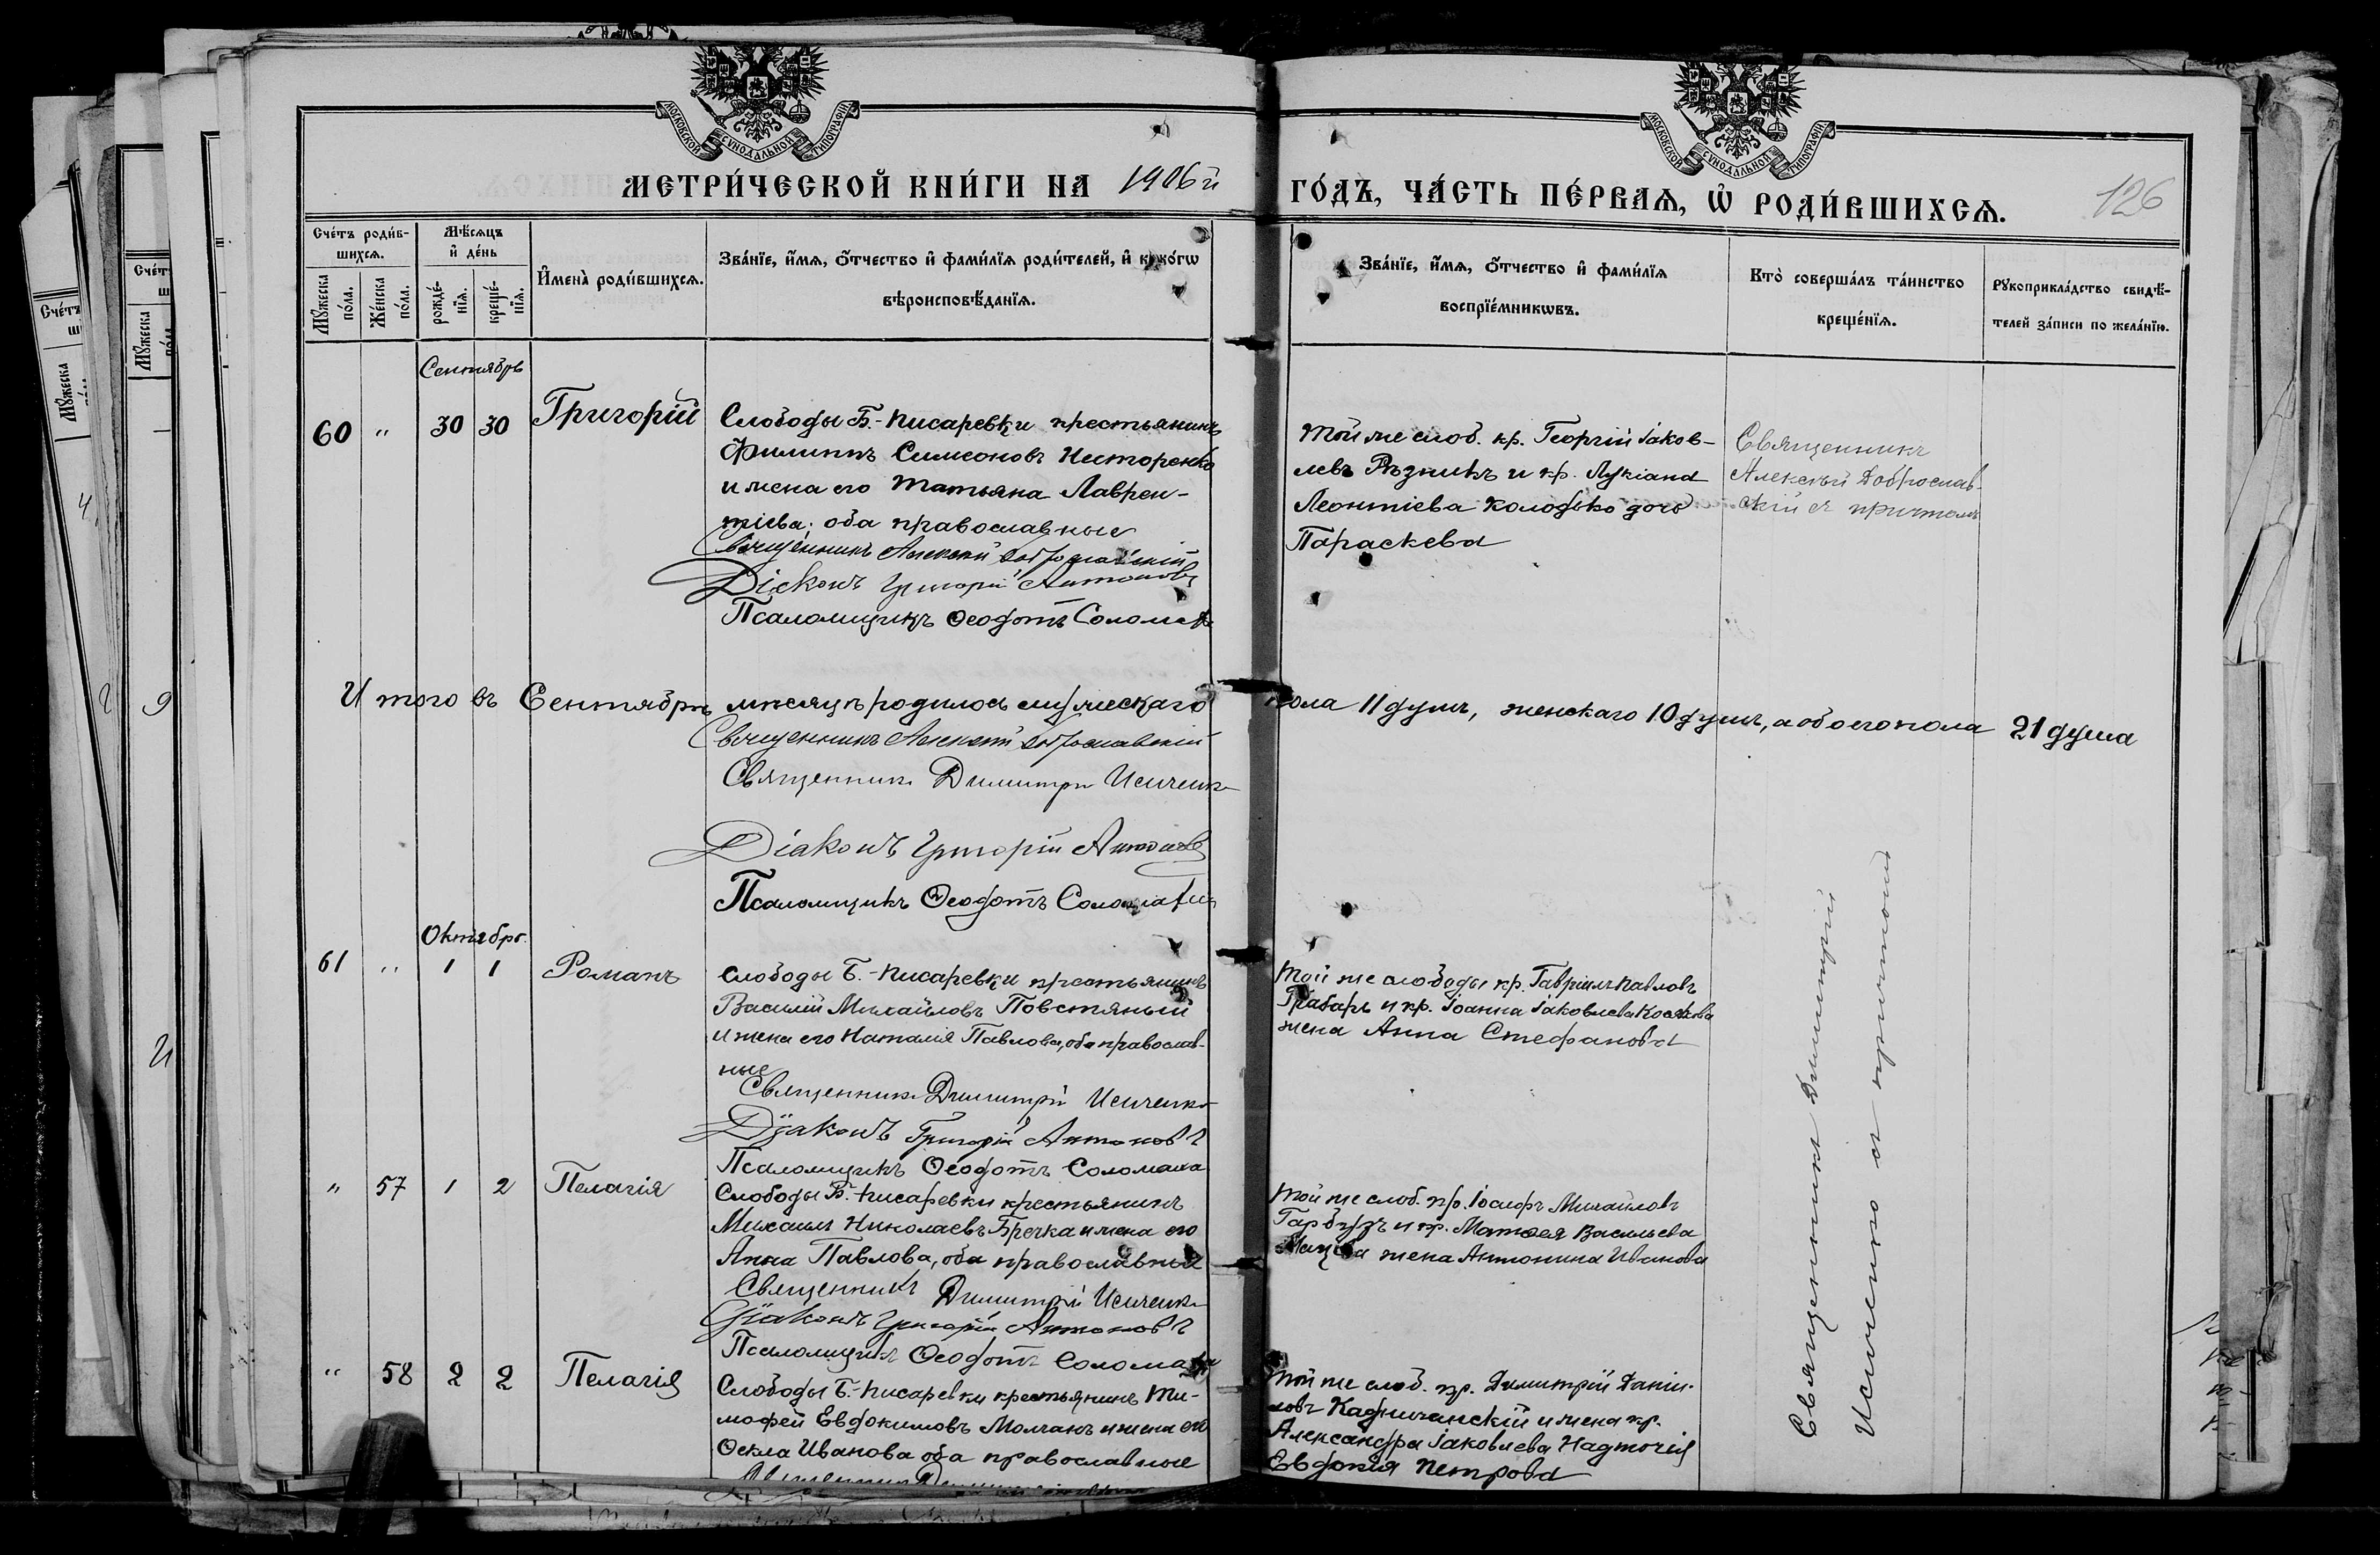 МОСКОВСКОЙ СѴНОДАЛЬНОЙ ТИПОГРАФІИ
МОСКОВСКОЙ СѴНОДАЛЬНОЙ ТИПОГРАФІИ
МЕТРИ́ЧЕСКОЙ КНИ́ГИ НА 1906й ГО́ДЪ, ЧА́СТЬ ПЕ́РВАѦ, Ѡ҆ РОДИ́ВШИХСѦ. 126
Сче́тъ роди́в-
шихсѧ.
Мꙋ́жеска по́ла.
Же́нска по́ла.
Мѣ́сѧцъ
и҆ де́нь
рожде́-
нїѧ.
креще́-
нїѧ.
И҆мена̀ роди́вшихсѧ.
Зва́нїе, и҆́мѧ, ѻ҆́тчество и҆ фами́лїѧ роди́телей, и҆ како́гѡ
вѣроисповѣ́данїѧ.
Зва́нїе, и҆́мѧ, ѻ҆́тчество и҆ фами́лїѧ
воспрїе́мникѡвъ.
Кто̀ соверша́лъ та́инство
креще́нїѧ.
Рꙋкоприкла́дство свидѣ́-
телей за́писи по жела́нїю.
Сентябрь
60 " 30 30 Григорій
Слободы Б.-Писаревки крестьянинъ
Филиппъ Симеоновъ Несторенко
и жена его Татьяна Лаврен-
тіева; оба православные
Священникъ Алексѣй Доброславскій
Діаконъ Григорій Антоновъ
Псаломщикъ Ѳеодотъ Соломаха
Той же слоб. кр. Георгій Іаков-
левъ Рѣзникъ и кр. Лукіана
Леонтіева Колодько дочь
Параскева
Священникъ
Алексѣй Доброслав-
скій съ причтомъ
Итого въ Сентябрѣ мѣсяцѣ родилось мужескаго пола 11 душъ, женскаго 10 душъ, а обоего пола 21 душа
Священникъ Алексѣй Доброславскій
Священникъ Димитрій Исиченко
Діаконъ Григорій Антоновъ
Псаломщикъ Ѳеодотъ Соломаха
Октябрь
61 " 1 1 Романъ
Слободы Б.-Писаревки крестьянинъ
Василій Михайловъ Повстяный
и жена его Наталія Павлова, оба православ-
ные
Священникъ Димитрій Исиченко
Діаконъ Григорій Антоновъ
Псаломщикъ Ѳеодотъ Соломаха
Той же слободы кр. Гавріилъ Павловъ
Грабарь и кр. Іоанна Іаковлева
жена Анна Стефанова
" 57 1 2 Пелагія
Слободы Б.-Писаревки крестьянинъ
Михаилъ Николаевъ Гречка и жена его
Анна Павлова, оба православные
Священникъ Димитрій Исиченко
Діаконъ Григорій Антоновъ
Псаломщикъ Ѳеодотъ Соломаха
Той же слоб. кр. Іосифъ Михайловъ
Гарбузъ и кр. Матѳея Васильева
жена Антонина Иванова
" 58 2 2 Пелагія
Слободы Б.-Писаревки крестьянинъ Ти-
мофей Евдокимовъ Молчанъ и жена его
Ѳекла Иванова оба православные
Той же слоб. кр. Димитрій Даніи-
ловъ и жена кр.
Александра Іаковлева Надточія
Евдокія Петрова
Священникъ Димитрій
Исиченко съ причтомъ